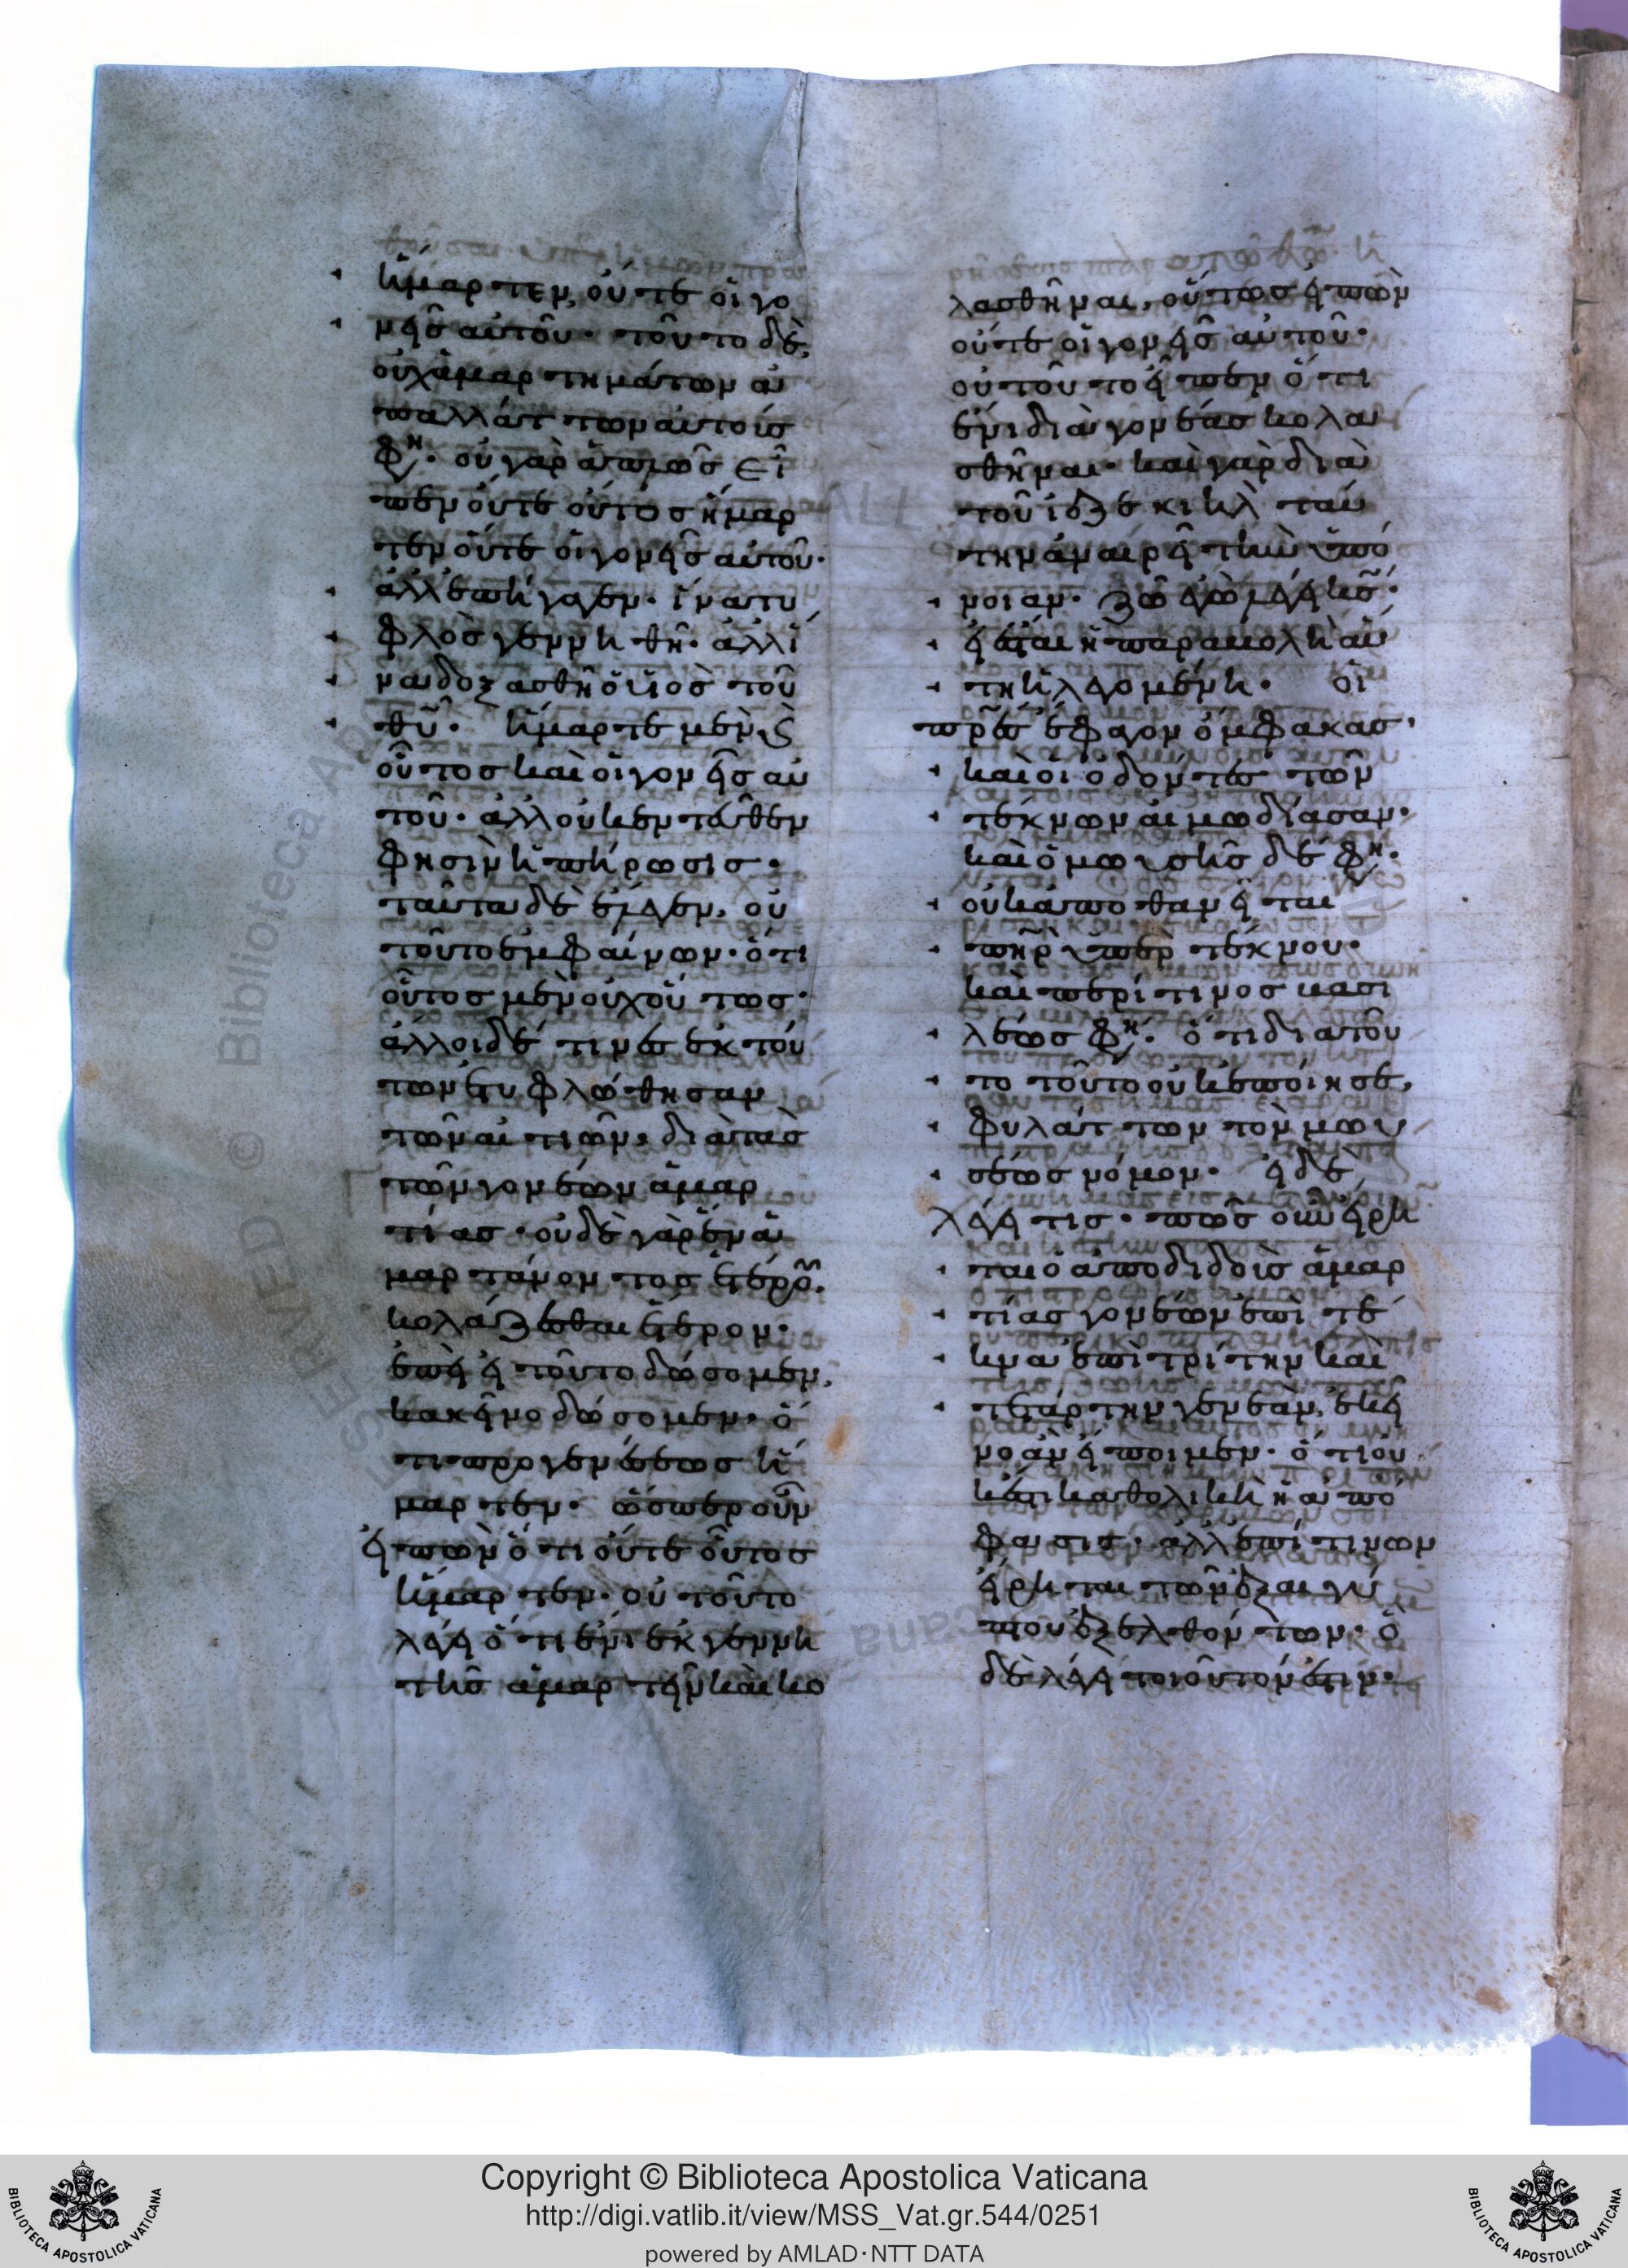 ἥμαρτεν, οὔτε οἱ γο
νεῖς αὐτοῦ· τοῦτο δὲ,
οὐχ ἁμαρτημάτων ἀ
παλλάττων αὐτούς
φη· οὐ γὰρ ἁπλῶς εἶ
πεν οὔτε οὗτος ἥμαρ
τεν οὔτε οἱ γονεῖς αὐτοῦ·
ἀλλ ἐπήγαγεν· ἵνα τυ
φλὸς γεννηθῆ· ἀλλ ἵ
να δοξασθῆ ὁ υἱὸς τοῦ
θυ· ἥμαρτε μὲν γ
οὗτος καὶ οἱ γονεῖς αὐ
τοῦ· ἀλλ οὐκ ἐντεῦθεν
φησὶν ἡ πήρωσις·
ταῦτα δὲ ἔλεγεν, οὐ
τοῦτο ἐμφαίνων· ὅτι
οὗτος μὲν οὐχ οὕτως·
ἄλλοι δέ τινες ἐκ τού
των ἐτυφλώθησαν
τῶν αἰτιῶν, διὰ τὰς
τῶν γονέων ἁμαρ
τίας· οὐδὲ γὰρ ἔνι ἁ
μαρτάνοντος ἑτέρου,
κολάζεσθαι ἕτερον·
ἐπεὶ εἰ τοῦτο δώσομεν,
κακεῖνο δώσομεν· ὅ
τι προ γενέσεως ἥ
μαρτεν· ὥσπερ οὖν
εἰπὼν ὅτι οὔτε οὗτος
ἥμαρτεν· οὐ τοῦτο
λέγει ὅτι ἔνι ἐκ γεννη
τῆς ἁμαρτεῖν καὶ κο
λασθῆναι, οὕτως εἰπὼν
οὔτε οἱ γονεῖς αὐτοῦ·
οὐ τοῦτο εἶπεν ὅτι
ἔνι διὰ γονέας κολα
σθῆναι· καὶ γὰρ διὰ
τοῦ ἰεζεκιὴλ ταύ
την ἀναιρεῖ τὴν ὑπό
νοιαν· ζῶ ἐγὼ λέγει κς·
εἰ ἔσται ἡ παραβολὴ αὕ
τη ἡ λεγομένη· οἱ
πρες ἔφαγον ὄμφακας·
καὶ οἱ ὀδόντες τῶν
τέκνων αἱμωδίασαν·
καὶ ὁ μωυσῆς δέ φη·
οὐκ ἀποθανεῖται
πηρ ὑπὲρ τέκνου·
καὶ περί τινος βασι
λέως φη· ὅτι διὰ τοῦ
το τοῦτο οὐκ ἐποίησε,
φυλάττων τὸν μωυ
σέως νόμον· εἰ δὲ
λέγει τις· πῶς οὖν εἴρη
ται ὁ ἀποδιδοὺς ἁμαρ
τίας γονέων ἐπὶ τέ
κνα ἐπὶ τρίτην καὶ
τετάρτην γενεάν, ἐκεῖ
νο ἂν εἴποιμεν· ὅτι οὐ
κ ἔστι καθολικὴ ἡ ἀπό
φασις· ἀλλ ἐπί τινων
εἴρηται τῶν ἐξ αἰγύ
πτου ἐξελθόντων· ὃ
δὲ λέγει τοιοῦτόν ἐστιν·
Copyright © Biblioteca Apostolica Vaticana
http://digi.vatlib.it/view/MSS_Vat.gr.544/0251
powered by AMLAD·NTT DATA
BIBLIOTECA APOSTOLICA VATICANA
BIBLIOTECA APOSTOLICA VATICANA